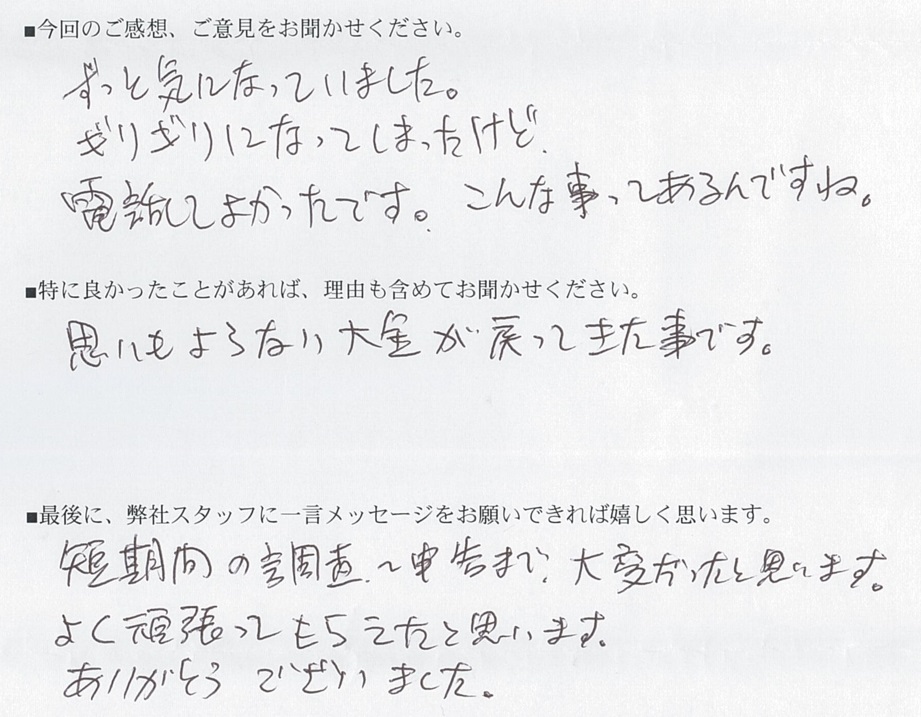 ■今回のご感想、ご意見をお聞かせください。
ずっと気になっていました。
ギリギリになってしまったけど、
電話してよかったです。こんな事ってあるんですね。
■特に良かったことがあれば、理由も含めてお聞かせください。
思いもよらない大金が戻ってきた事です。
■最後に、弊社スタッフに一言メッセージをお願いできれば嬉しく思います。
短期間の調査〜申告まで、大変だったと思います。
よく頑張ってもらえたと思います。
ありがとうございました。